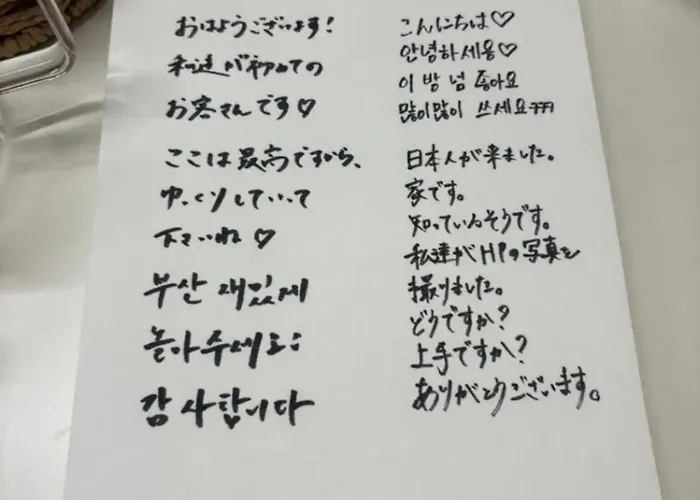 おはようございます!
私達が初めての
お客さんです♡
ここは最高ですから、
ゆっくりしていって
下さいね♡
부산 재밌게
놀아주세요:
감사합니다
こんにちは♡
안녕하세용♡
이 방 넘 좋아요
많이많이 쓰세요ㅋㅋㅋ
日本人が来ました。
家です。
知っているそうです。
私達がHPの写真を
撮りました。
どうですか?
上手ですか?
ありがとうございます。